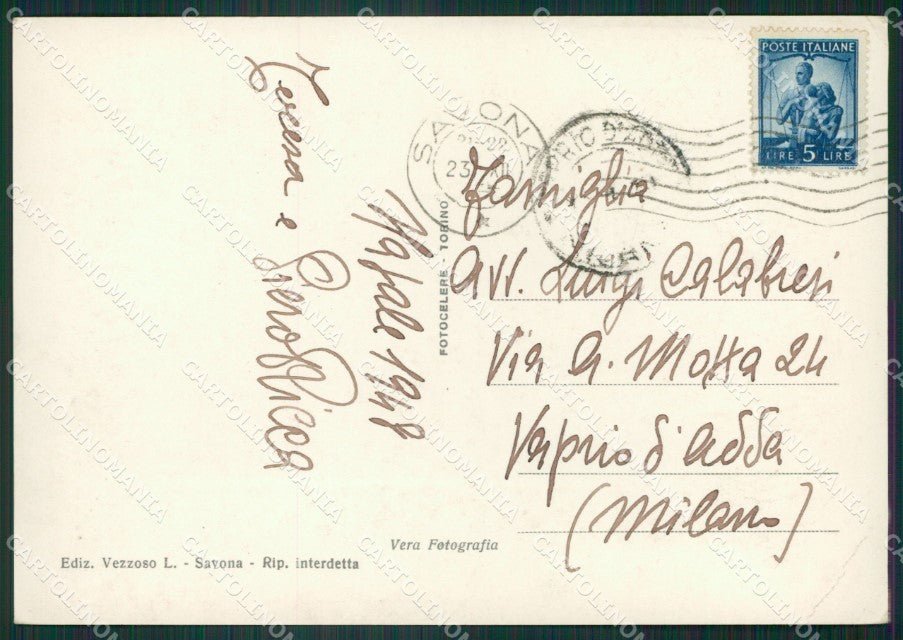 POSTE ITALIANE
LIRE 5 LIRE
SAVONA
Famiglia
Avv. Luigi Calabresi
Via A. Motta 24
Vaprio d'Adda
(Milano)
e Piero Ricca
Natale 1948
FOTOCELERE - TORINO
Vera Fotografia
Ediz. Vezzoso L. - Savona - Rip. interdetta
CARTOLINOMANIA